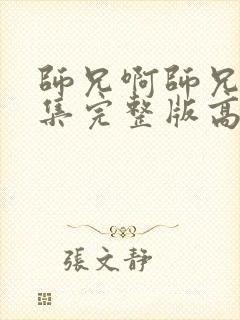 師兄啊師兄
集完整版高
張文靜